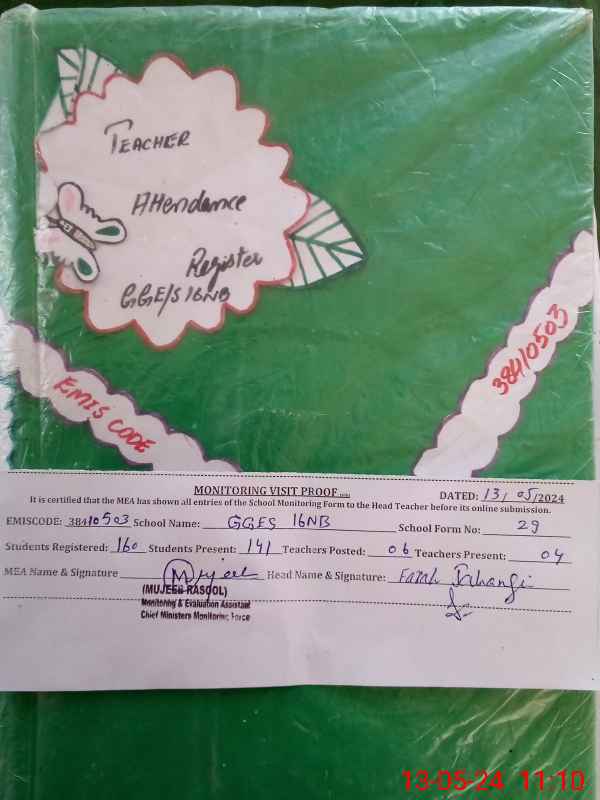 TEACHER
Attendance
Register
GGE/S 16NB
EMIS CODE
38410503
MONITORING VISIT PROOF
DATED: 13/05/2024
It is certified that the MEA has shown all entries of the School Monitoring Form to the Head Teacher before its online submission.
EMISCODE: 38410503 School Name: GGES 16NB School Form No: 29
Students Registered: 160 Students Present: 141 Teachers Posted: 06 Teachers Present: 04
MEA Name & Signature Mujeeb Head Name & Signature: Farah Jahangir
(MUJEEB RASOOL)
Monitoring & Evaluation Assistant
Chief Ministers Monitoring Force
13-05-24 11:10